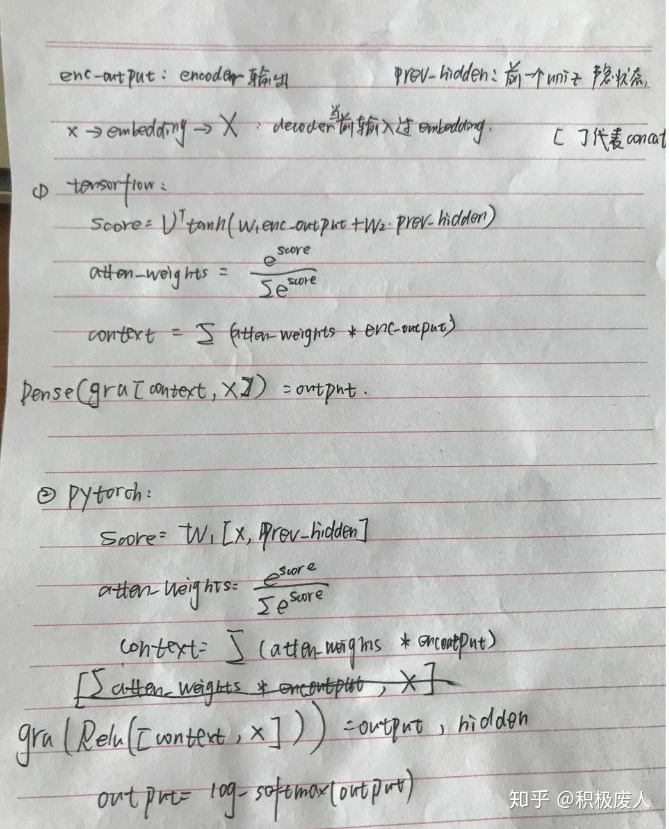 enc-output: encoder 输出 prev-hidden: 前一个unit 隐状态,
x → embedding → X : decoder当前输入过 embedding. [ ]代表concat
① tensorflow:
score = Vᵀtanh(W₁enc-output + W₂·prev-hidden)
atten-weights = e^score / Σe^score
context = Σ (atten-weights * enc-output)
Dense(gru[context, X]) = output.
② pytorch:
score = W₁[X, prev-hidden]
atten-weights = e^score / Σe^score
context = Σ (atten-weighs * encoutput)
[Σ atten-weights * encoutput, X]
gru(Relu([context, x])) = output, hidden
output = log-softmax(output)
知乎 @积极废人